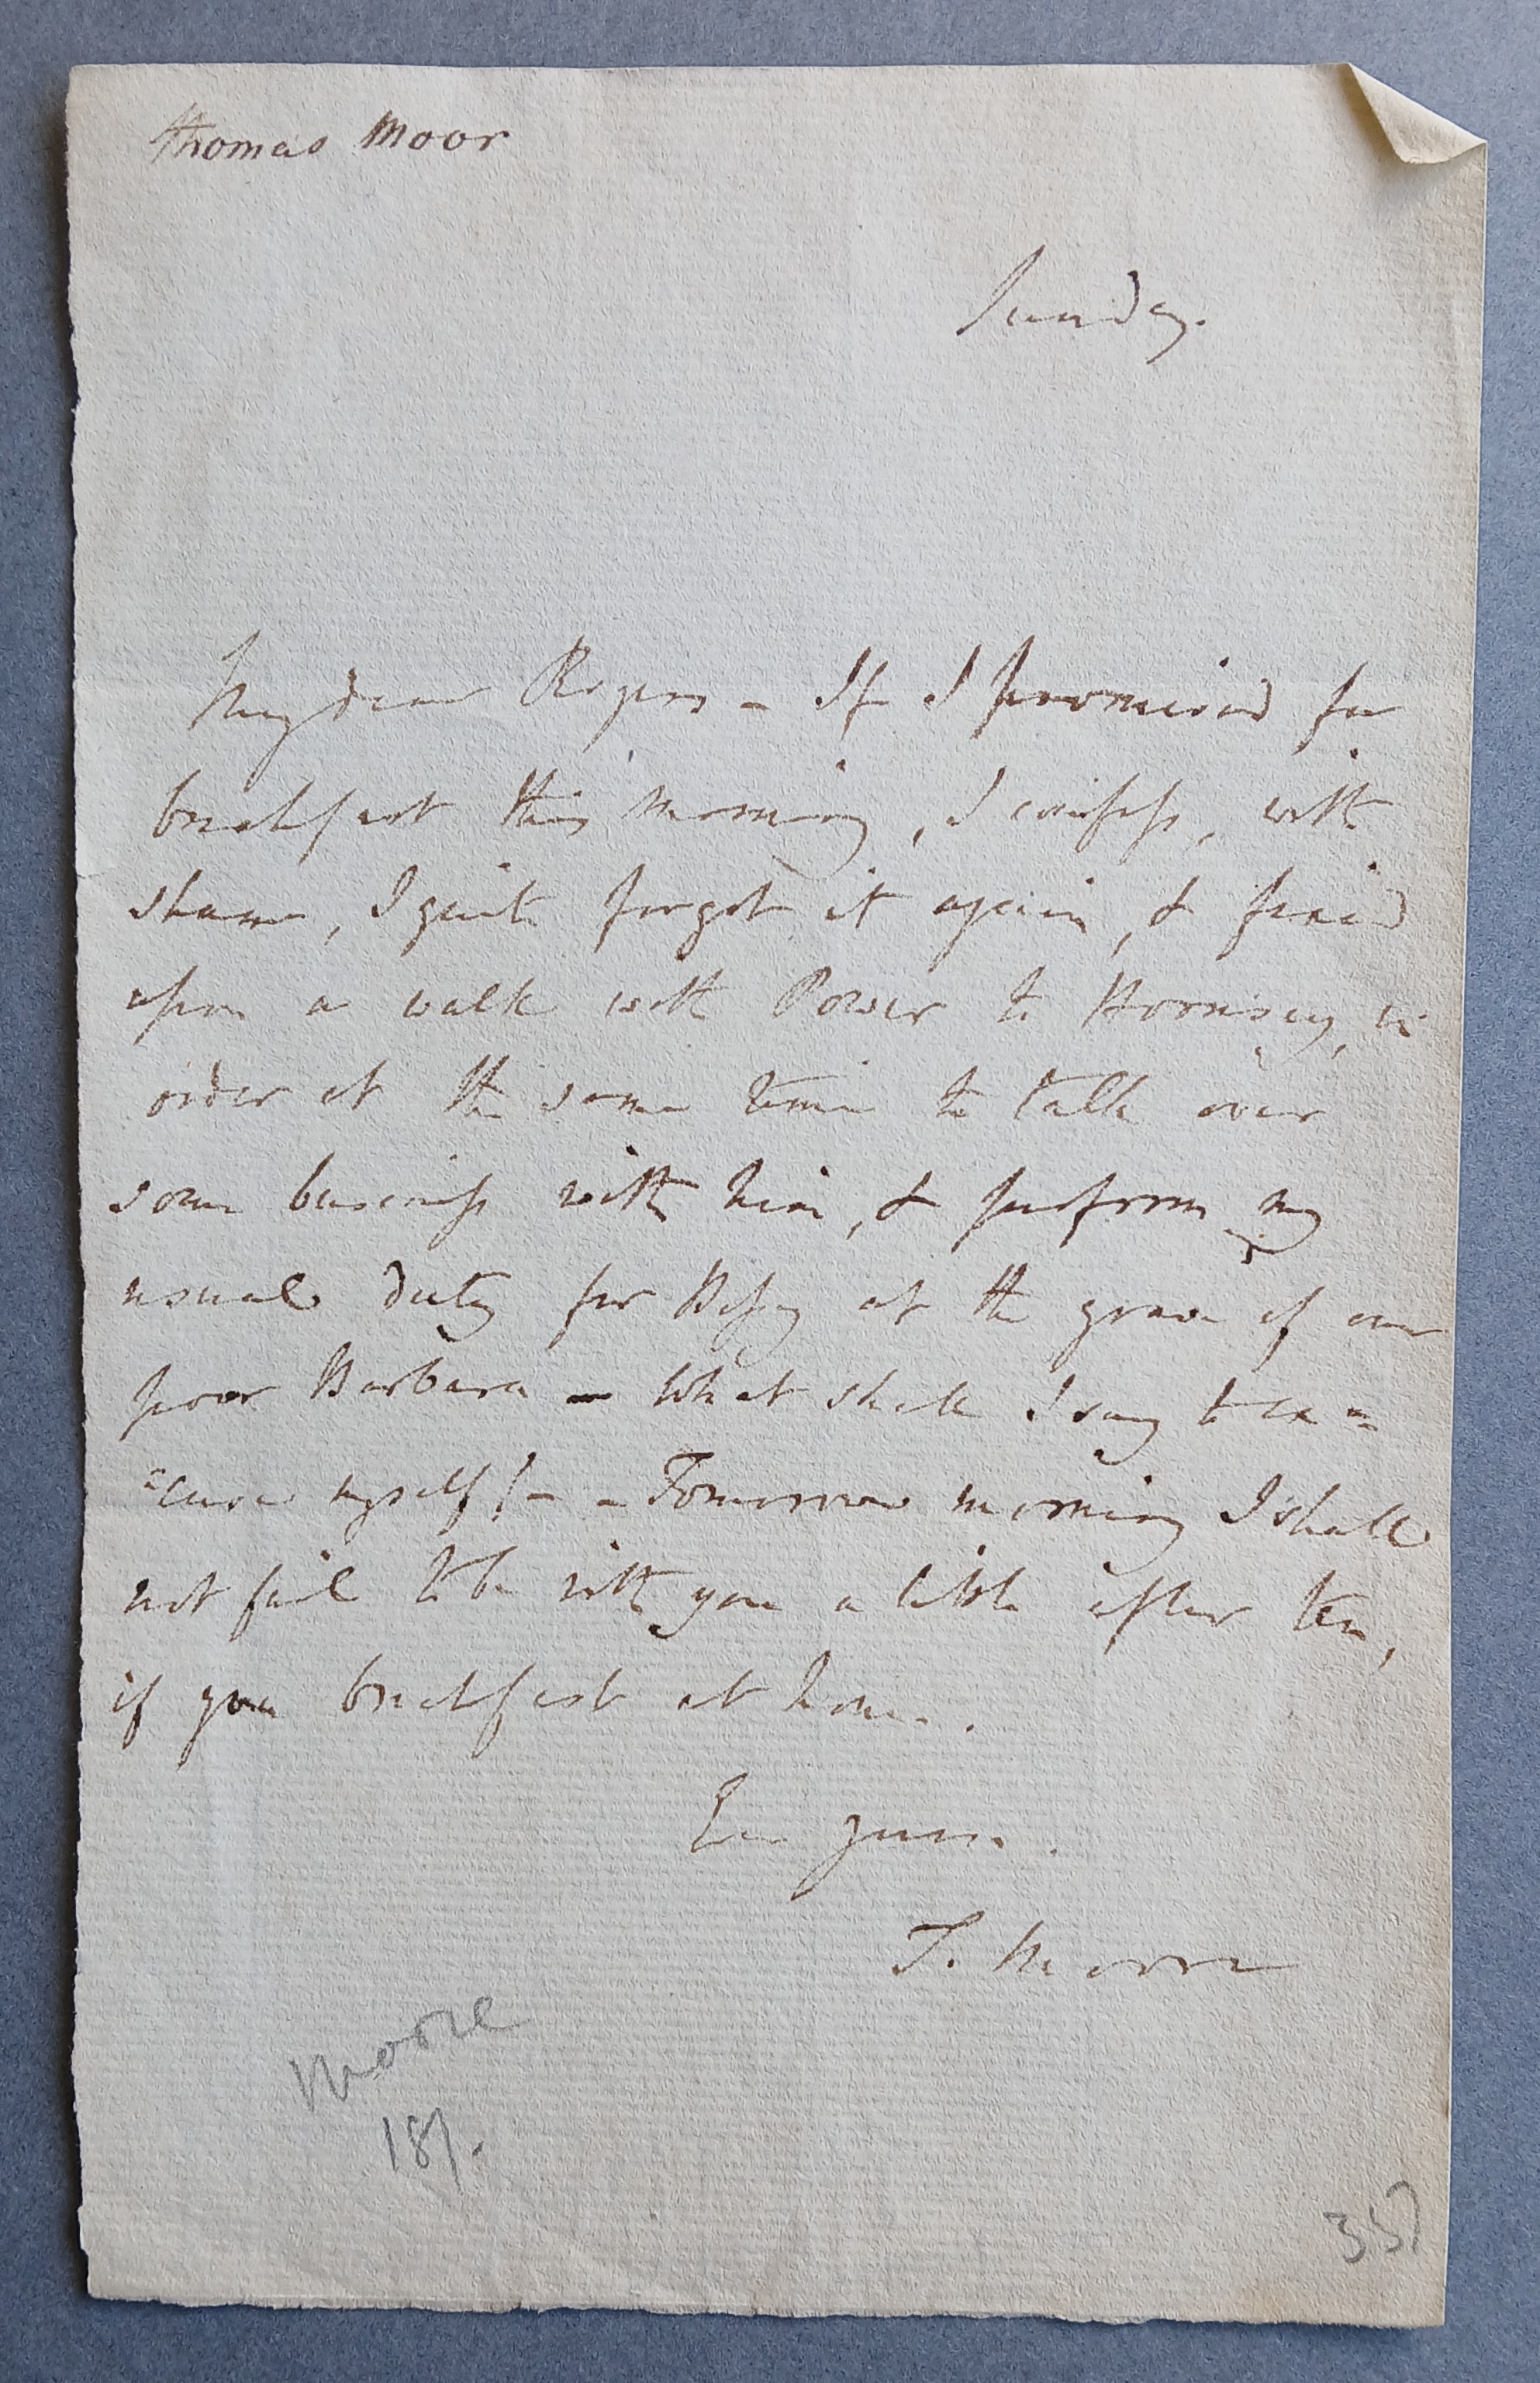 Thomas Moor
Sunday.
My dear Rogers - If I promised for
breakfast this morning, I confess, with
shame, I quite forgot it again, & fixed
upon a walk with Power to Hornsey, in
order at the same time to talk over
some business with him, & perform my
usual duty for Bessy at the grave of our
poor Barbara - What shall I say to ex=
=cuse myself! - - Tomorrow morning I shall
not fail to be with you a little after ten,
if you breakfast at home.
Ever yours.
T. Moore
Moore
18/.
357